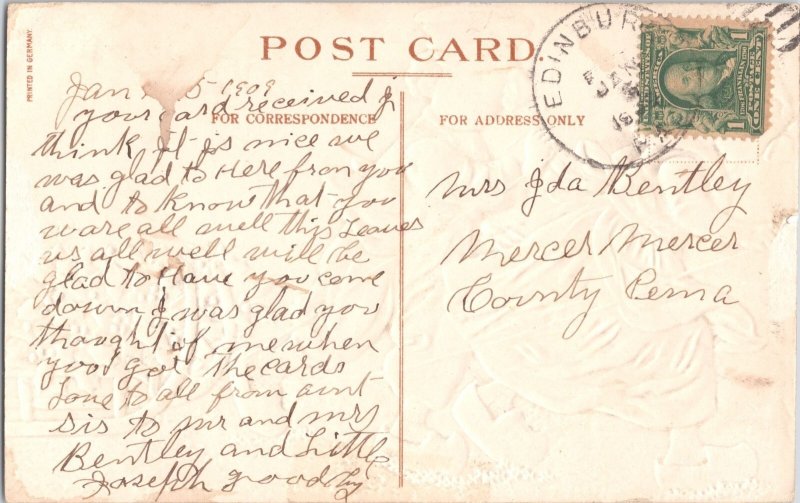 PRINTED IN GERMANY.
POST CARD.
FOR CORRESPONDENCE
FOR ADDRESS ONLY
EDINBUR
JAN
1
1
Jan 5-1909
your card received I
think it is nice we
was glad to Here from you
and to know that you
ware all well this Leaves
us all well will be
glad to Have you come
down I was glad you
thought of me when
you got the cards
Love to all from aunt
sis to mr and mrs
Bentley and Little
Joseph good by
Mrs Ida Bentley
Mercer Mercer
County Penna